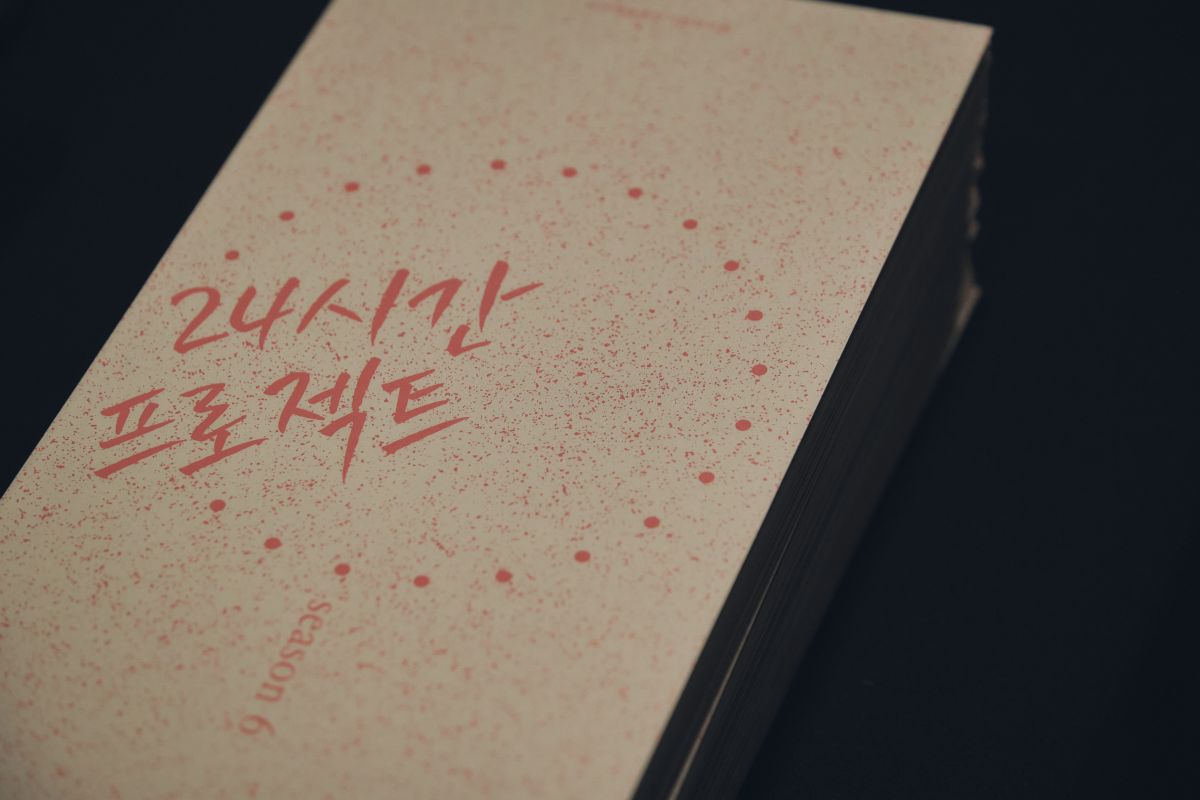 24시간
프로젝트
season 6